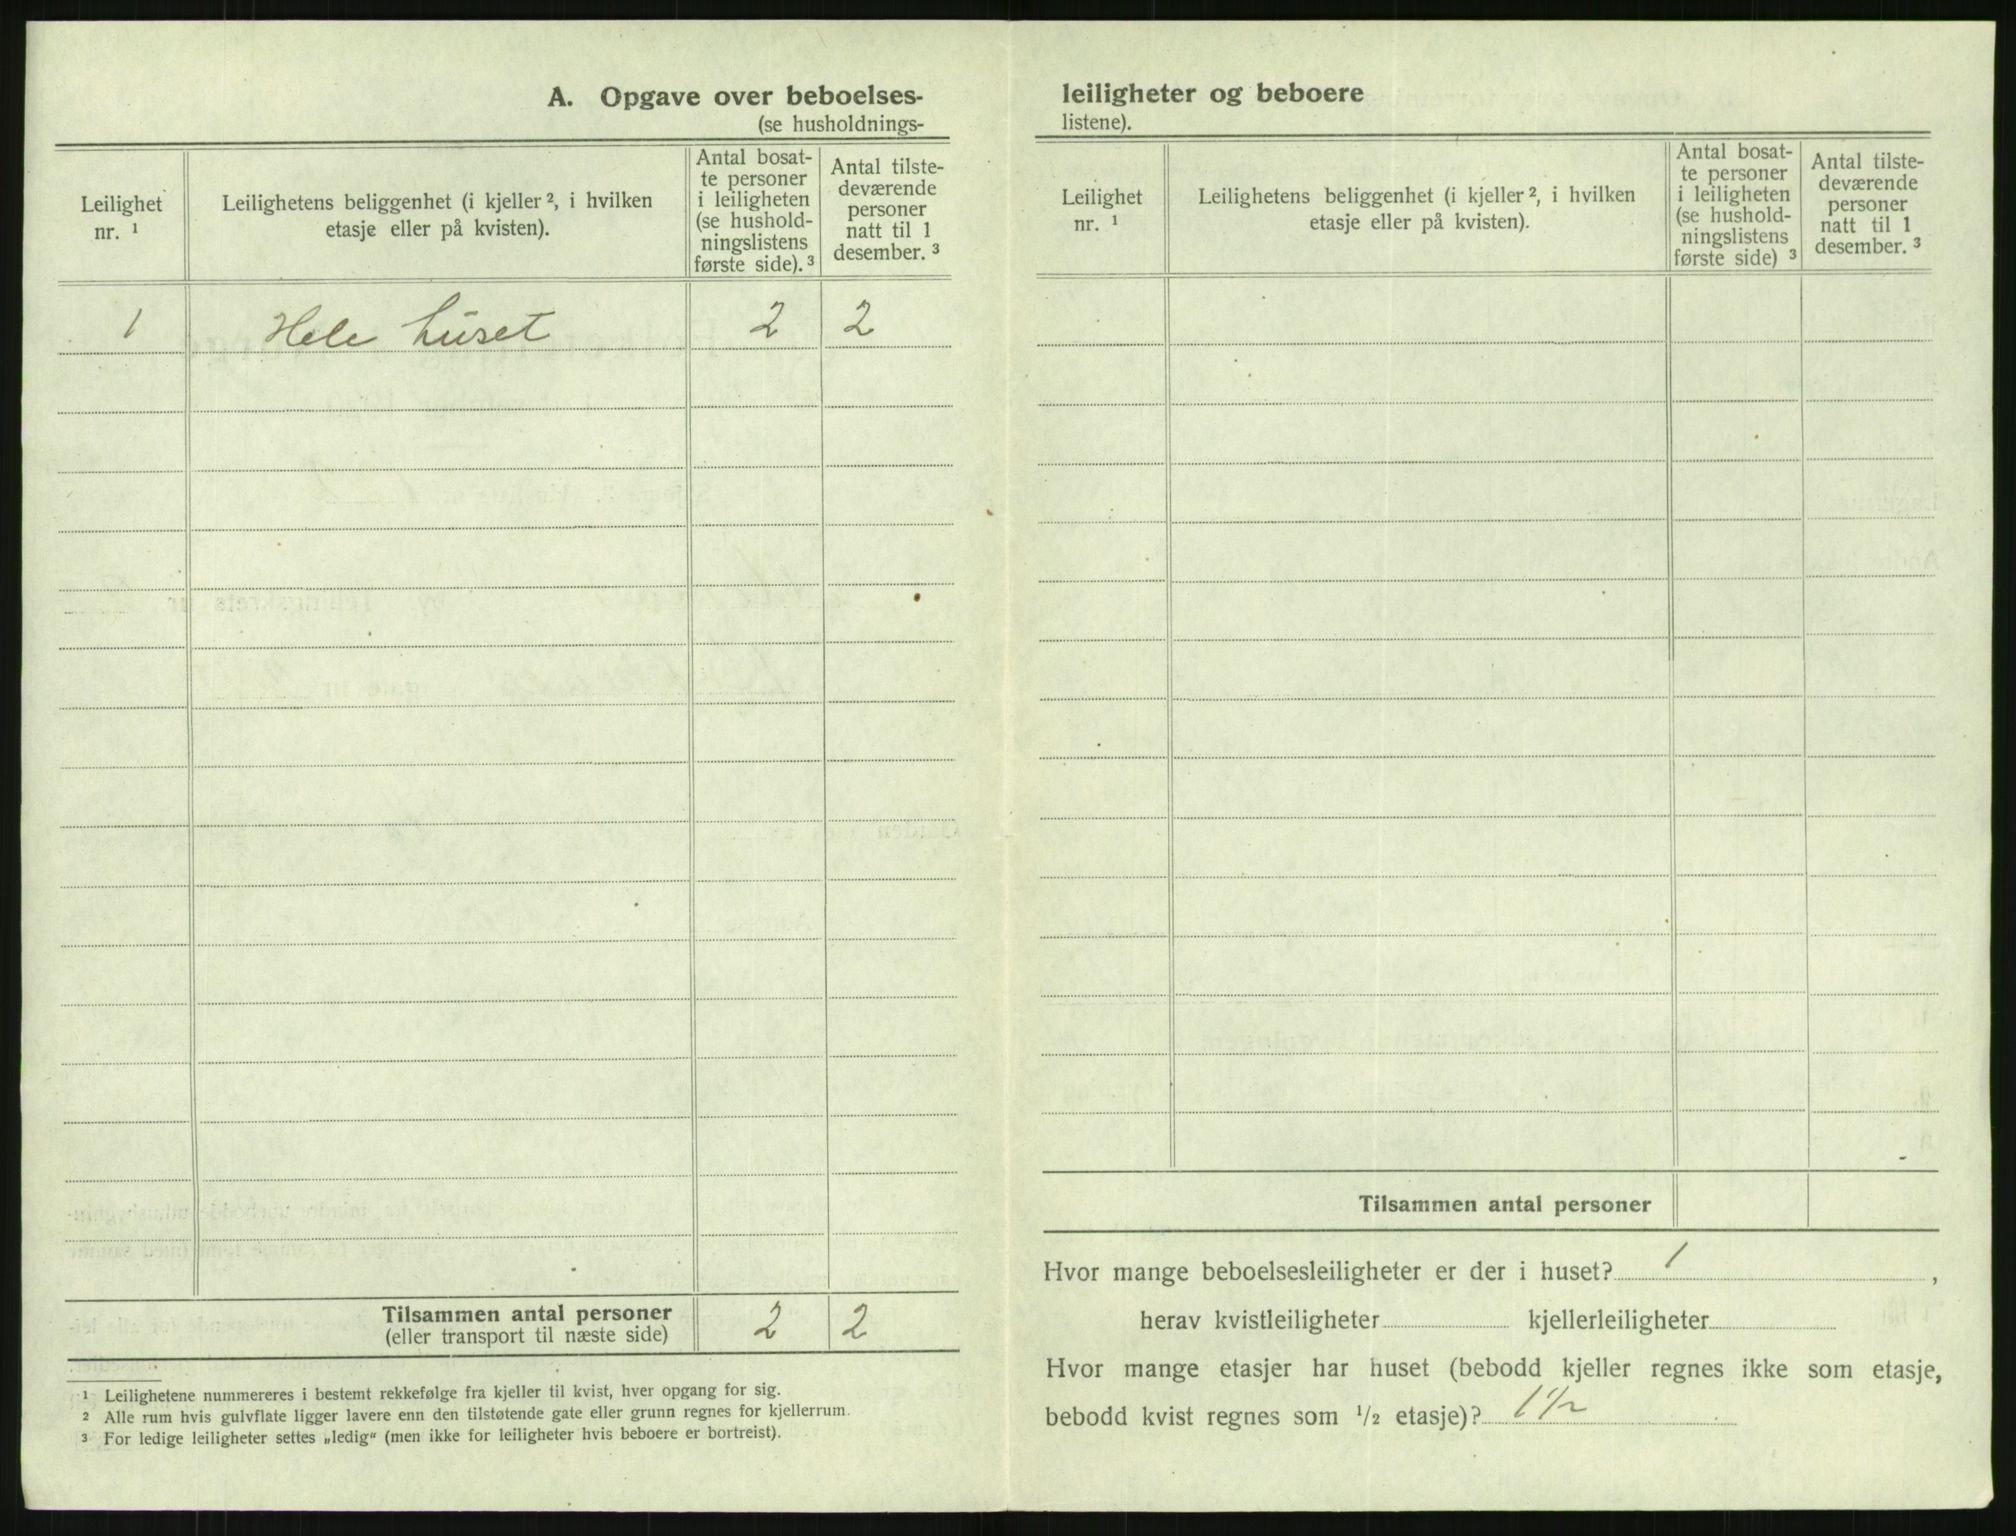 A. Opgave over beboelses-
(se husholdnings-
Leilighet
nr. ¹
Leilighetens beliggenhet (i kjeller ², i hvilken
etasje eller på kvisten).
Antal bosat-
te personer
i leiligheten
(se hushold-
ningslistens
første side). ³
Antal tilste-
deværende
personer
natt til 1
desember. ³
1 Hele huset 2 2
Tilsammen antal personer 2 2
(eller transport til næste side)
¹ Leilighetene nummereres i bestemt rekkefølge fra kjeller til kvist, hver opgang for sig.
² Alle rum hvis gulvflate ligger lavere enn den tilstøtende gate eller grunn regnes for kjellerrum.
³ For ledige leiligheter settes „ledig“ (men ikke for leiligheter hvis beboere er bortreist).
leiligheter og beboere
listene).
Leilighet
nr. ¹
Leilighetens beliggenhet (i kjeller ², i hvilken
etasje eller på kvisten).
Antal bosat-
te personer
i leiligheten
(se hushold-
ningslistens
første side) ³
Antal tilste-
deværende
personer
natt til 1
desember. ³
Tilsammen antal personer
Hvor mange beboelsesleiligheter er der i huset? 1 ,
herav kvistleiligheter kjellerleiligheter
Hvor mange etasjer har huset (bebodd kjeller regnes ikke som etasje,
bebodd kvist regnes som ¹/₂ etasje)? 1½